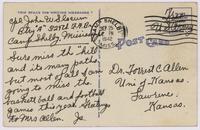 THIS SPACE FOR WRITING MESSAGES
Cpl John W
Btry "A"
Camp Shelby, Miss
Sure miss "the hill"
and its many paths
but most of all I am
going to miss the
basketball and football
games this year. Greetings
to Mrs Allen. Jo.
CAMP SHELBY
1942
Free
POST CARD
Dr. Forrest C Allen
Uni of Kansas.
Lawrence,
Kansas.